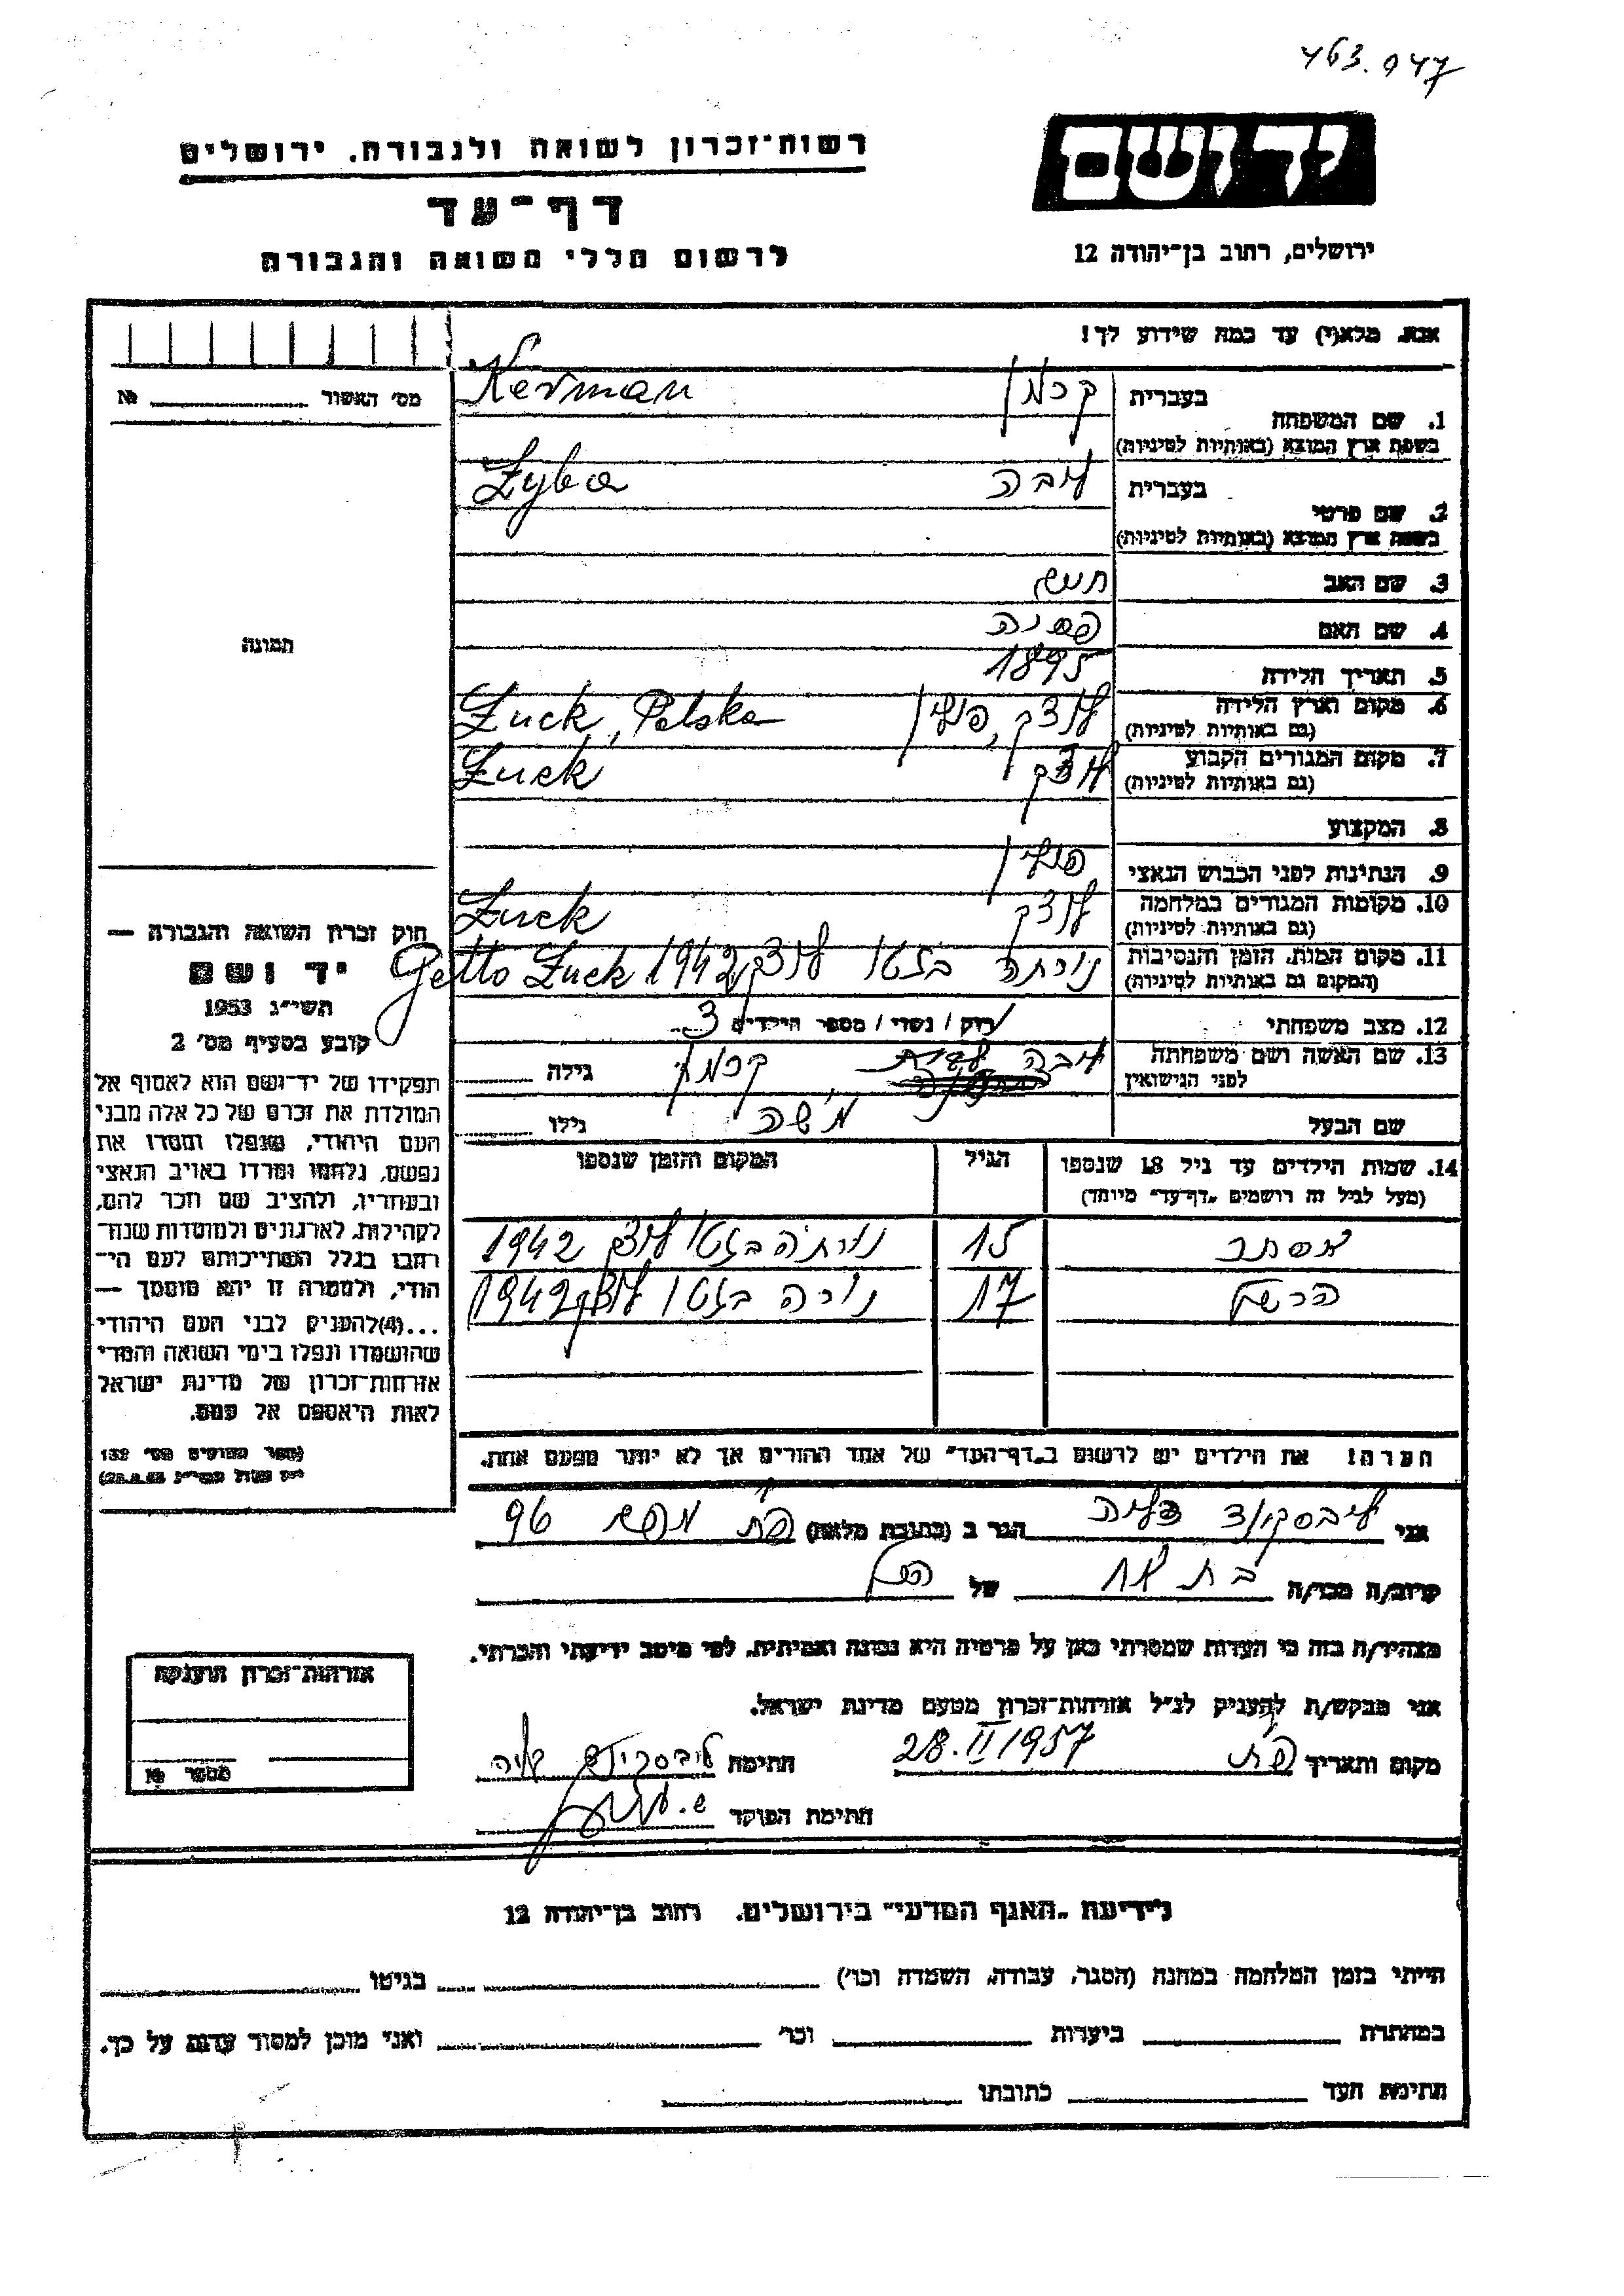 463.047
רשות־זכרון לשואה ולגבורה. ירושלים
יד ושם
דף־עד
לרשום חללי השואה והגבורה
ירושלים, רחוב בן־יהודה 12
אנא. מלא(י) עד כמה שידוע לך!
מס׳ האשור № 
בעברית קרמן Kerman
1. שם המשפחה
בשפת ארץ המוצא (באותיות לטיניות)
בעברית ליבה Lyba
2. שם פרטי
בשפת ארץ המוצא (באותיות לטיניות)
3. שם האב
4. שם האם
תמונה
5. תאריך הלידה 1895
6. מקום וארץ הלידה לוצק, פולין Łuck, Polska
(גם באותיות לטיניות)
7. מקום המגורים הקבוע לוצק Łuck
(גם באותיות לטיניות)
8. המקצוע
9. הנתינות לפני הכבוש הנאצי פולין
10. מקומות המגורים במלחמה לוצק Łuck
(גם באותיות לטיניות)
11. מקום המות, הזמן והנסיבות נורתה בגטו לוצק 1942 Getto Łuck
(המקום גם באותיות לטיניות)
12. מצב משפחתי רווק / נשוי / מספר הילדים 3
13. שם האשה ושם משפחתה ליבה קרמן גילה
לפני הנישואין
שם הבעל משה גילו
14. שמות הילדים עד גיל 18 שנספו הגיל המקום והזמן שנספו
(מעל לגיל זה רושמים „דף־עד״ מיוחד)
אסתר 15 נורתה בגטו לוצק 1942
הרשל 17 נורה בגטו לוצק 1942
הערה! את הילדים יש לרשום ב„דף־העד״ של אחד ההורים אך לא יותר מפעם אחת.
חוק זכרון השואה והגבורה —
יד ושם
תשי״ג 1953
קובע בסעיף מס׳ 2
תפקידו של יד־ושם הוא לאסוף אל
המולדת את זכרם של כל אלה מבני
העם היהודי, שנפלו ומסרו את
נפשם, נלחמו ומרדו באויב הנאצי
ובעוזריו, ולהציב שם וזכר להם,
לקהילות, לארגונים ולמוסדות שנח־
רבו בגלל השתייכותם לעם הי־
הודי, ולמטרה זו יהא מוסמך —
...(4)להעניק לבני העם היהודי
שהושמדו ונפלו בימי השואה והמרי
אזרחות־זכרון של מדינת ישראל
לאות היאספם אל עמם.
(ספר החוקים מס׳ 132
אני הגר ב (כתובת מלאה) 96
קרוב/ה מכר/ה בת אח של
מצהיר/ה בזה כי העדות שמסרתי כאן על פרטיה היא נכונה ואמיתית. לפי מיטב ידיעתי והכרתי.
אני מבקש/ת להעניק לנ״ל אזרחות־זכרון מטעם מדינת ישראל.
מקום ותאריך 28.II 1957 חתימה
חתימת הפוקד
אזרחות־זכרון הוענקה
מספר №
לידיעת „האגף המדעי״ בירושלים. רחוב בן־יהודה 12
הייתי בזמן המלחמה במחנה (הסגר, עבודה, השמדה וכו׳) בגיטו
במחתרת ביערות וכו׳ ואני מוכן למסור עדות על כך.
חתימת העד כתובתו